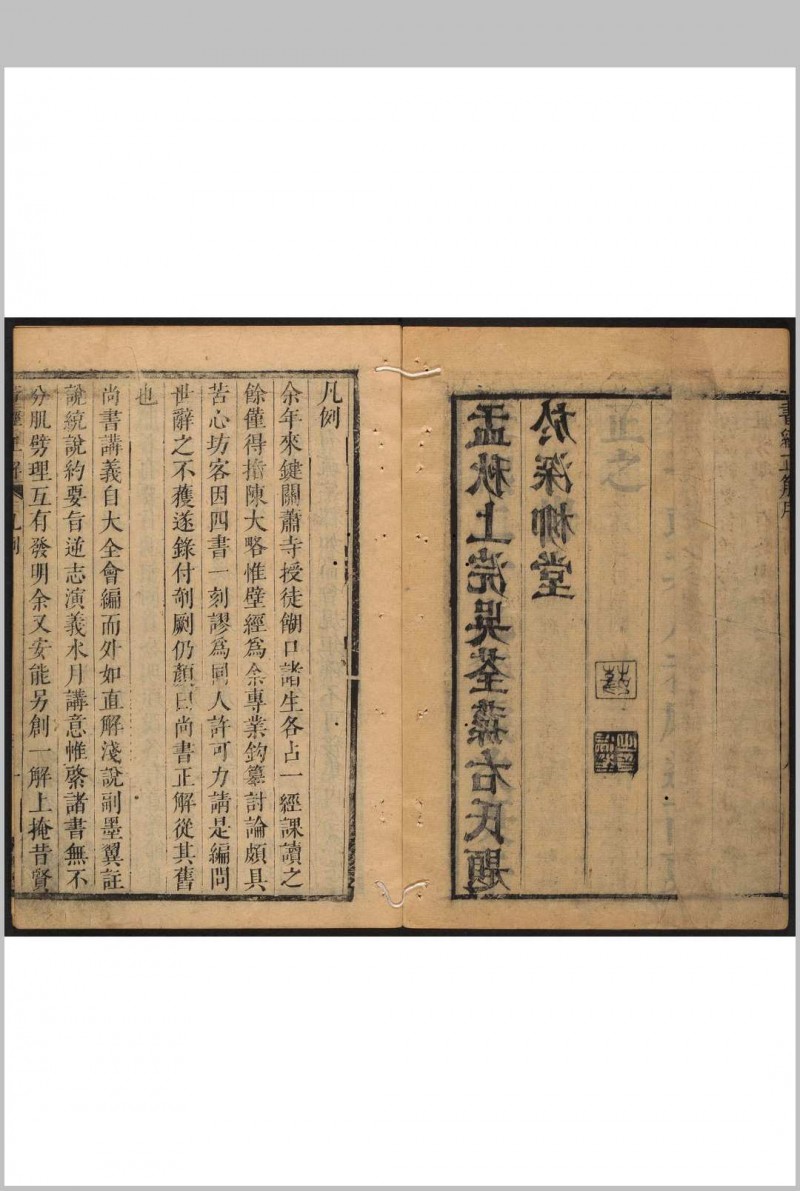 書經正解序
孟秋上浣吳荃蓀右氏題
於深柳堂
凡例
余年來鍵關蕭寺授徒餬口諸生各占一經課讀之
餘僅得撍陳大略惟壁經爲余專業鈎纂討論頗具
苦心坊客因四書一刻謬爲同人許可力請是編問
世辭之不獲遂錄付剞劂仍顏曰尚書正解從其舊
也
尚書講義自大全會編而外如直解淺說副墨翼註
說統說約要旨逆志演義水月講意惟繁諸書無不
分肌劈理互有發明余又安能另創一解上掩昔賢
書經正解 凡例 一